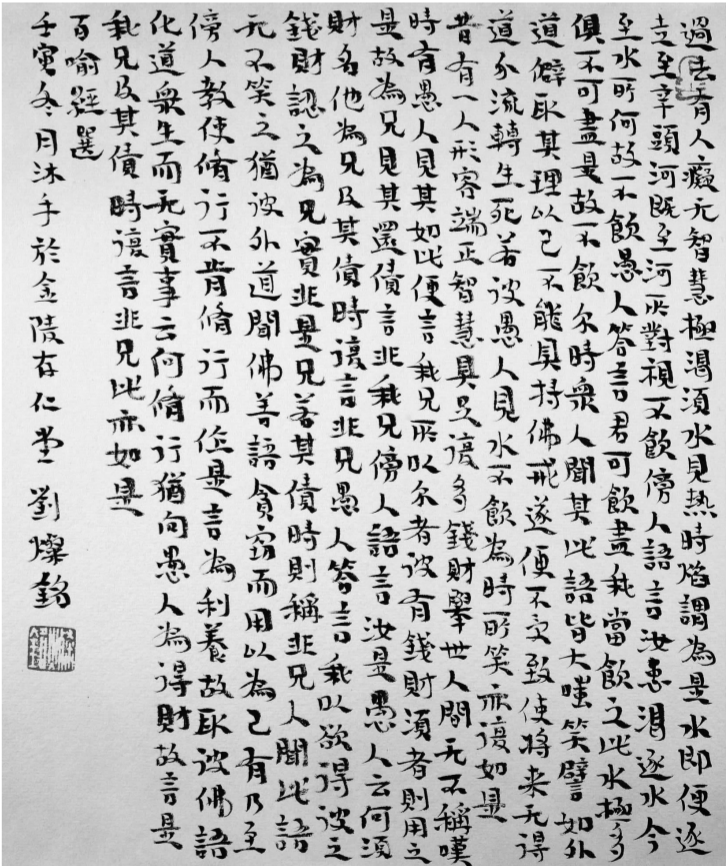 過去有人癡无智慧極渴須水見熱時焰謂為是水即便逐
走至辛頭河既至河所對視不飲傍人語言汝患渴逐水今
至水所何故不飲愚人答言君可飲盡我當飲之此水極多
俱不可盡是故不飲尔時衆人聞其此語皆大嗤笑譬如外
道僻取其理以己不能具持佛戒遂便不受致使將来无得
道分流轉生死若彼愚人見水不飲為時所笑亦復如是
昔有一人形容端正智慧具足復多錢財舉世人間无不稱嘆
時有愚人見其如此便言我兄所以尔者彼有錢財須者則用之
是故為兄見其還債言非我兄傍人語言汝是愚人云何須
財名他為兄及其債時復言非兄愚人答言我以欲得彼之
錢財認之為兄實非是兄若其債時則稱非兄人聞此語
无不笑之猶彼外道聞佛善語貪竊而用以為己有乃至
傍人教使脩行不肯脩行而作是言為利養故取彼佛語
化道衆生而无實事云何脩行猶向愚人為得財故言是
我兄及其債時復言非兄此亦如是
百喻經選
壬寅冬月沐手於金陵存仁堂 劉燦銘